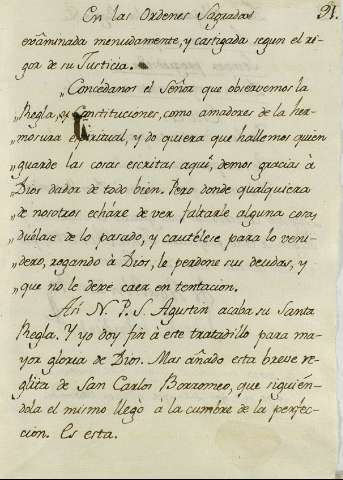 En las Ordenes Sagradas 91.
exâminada menudamente, y castigada segun el ri-
gor de su Justicia.
„Concédanos el Señor que observemos la
„Regla, y Constituciones, como amadores de la her-
„mosura espiritual, y do quiera que hallemos quien
„guarde las cosas escritas aquí, demos gracias à
„Dios dador de todo bien. Pero donde qualquiera
„de nosotros echáre de ver faltarle alguna cosa,
„duélase de lo pasado, y cautélese para lo veni-
„dero, rogando à Dios, le perdone sus deudas, y
„que no le dexe caer en tentacion.
Asi N. P. S. Agustin acaba su Santa
Regla. Y yo doy fin à este tratadillo para ma-
yor gloria de Dios. Mas añado esta breve re-
glita de San Carlos Borromeo, que siguién-
dola el mismo llegò à la cumbre de la perfec-
cion. Es esta.